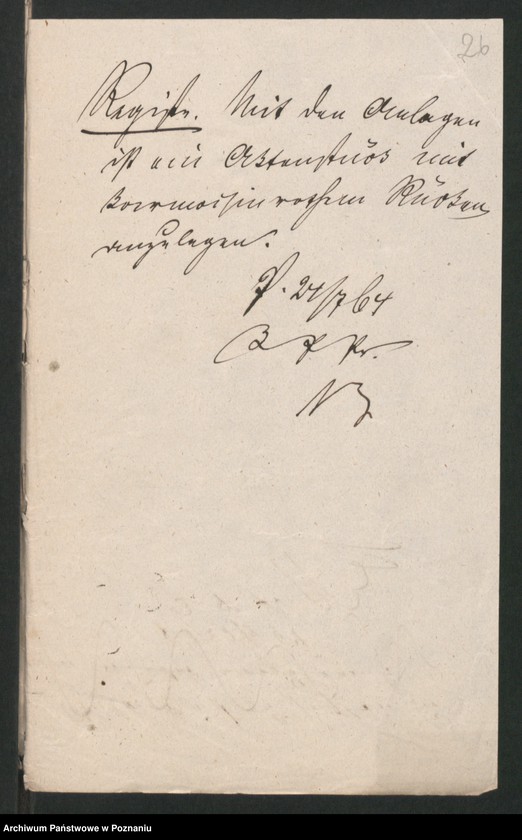 26
Registr. Mit den Anlagen
ist ein Aktenstück mit
karmoisinrothem Rücken
anzulegen.
P. 21/7 64
Archiwum Państwowe w Poznaniu